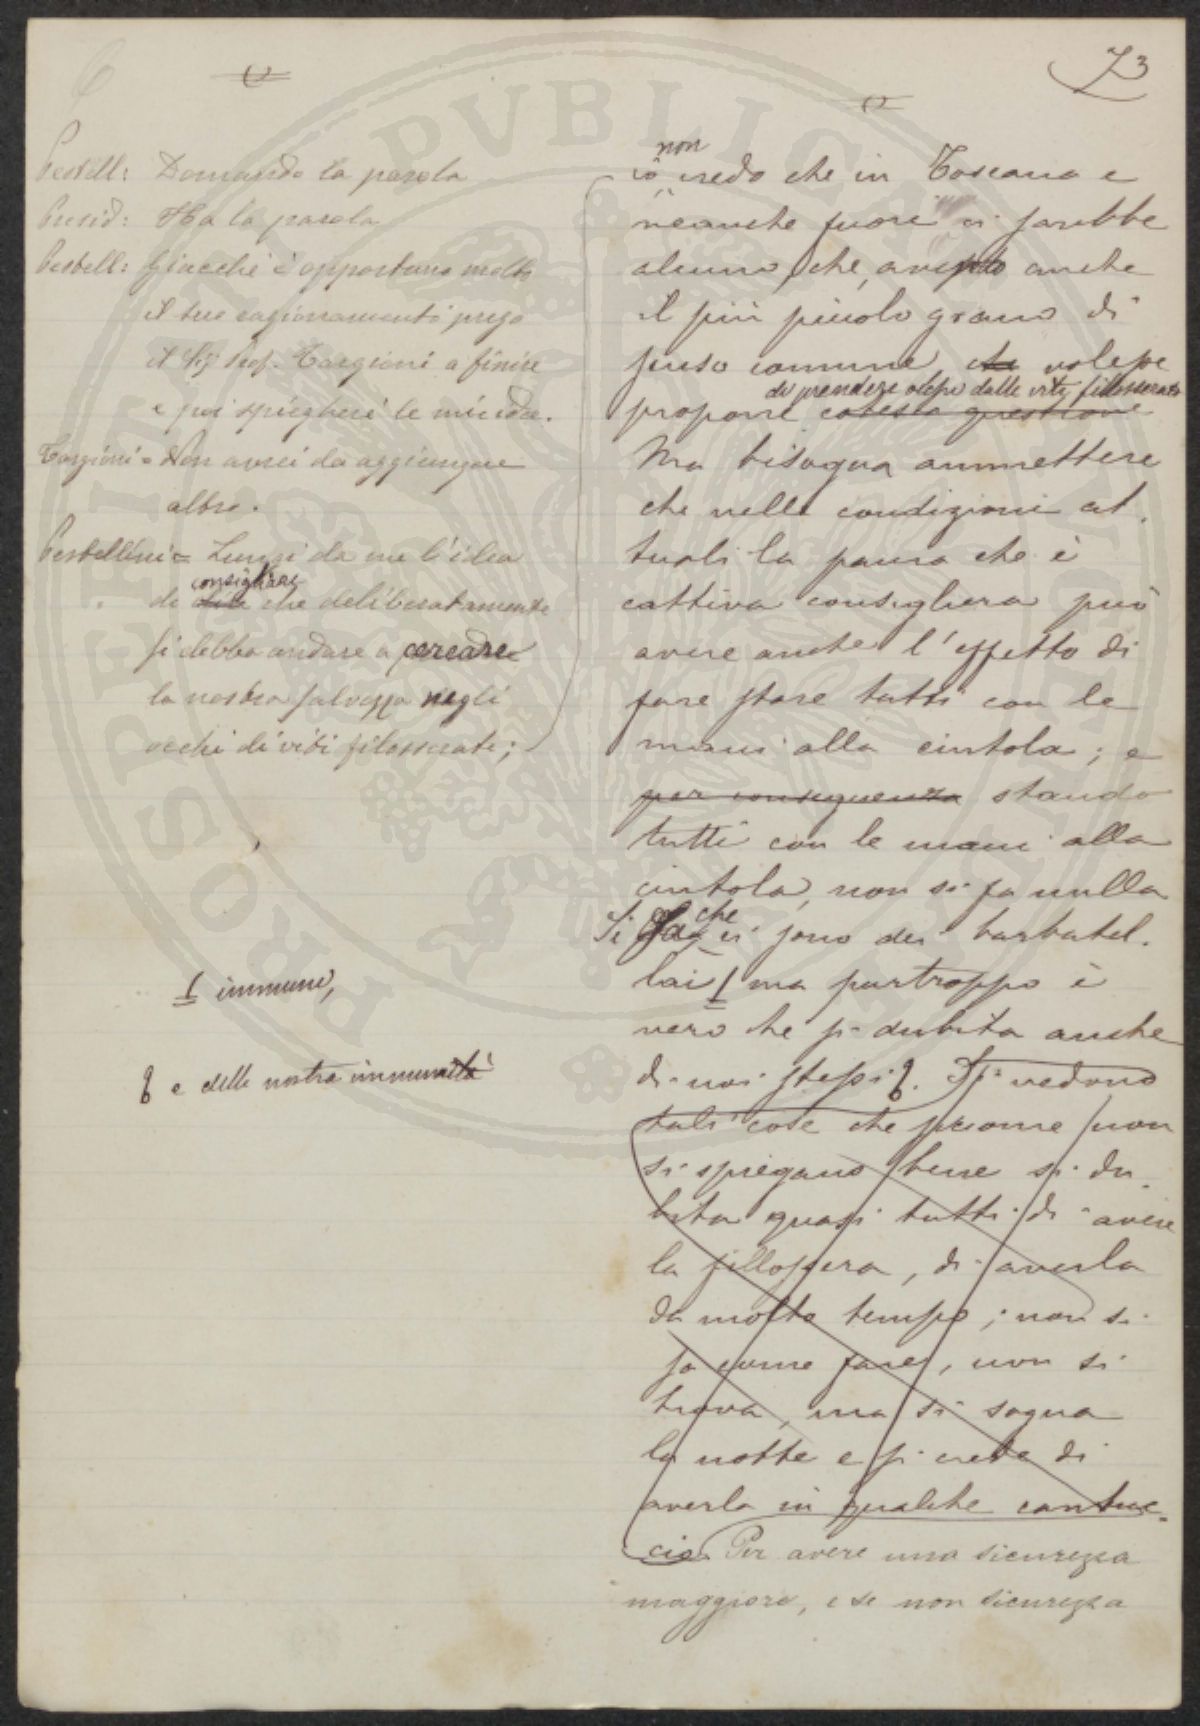 73
Pestell: Domando la parola
Presid: Ha la parola
Pestell: Giacchè è opportuno molto
il suo ragionamento prego
il Sig Prof. Targioni a finire
e poi spiegherò le mie idee.
Targioni = Non avrei da aggiungere
altro.
Pestellini = Lungi da me l'idea
consigliare
di dire che deliberatamente
si debba andare a cercare
la nostra salvezza negli
occhi di viti filosserate;
1 immuni,
e delle nostra immunità
non
io credo che in Toscana e
neanche fuori ci sarebbe
alcuno, che, avendo anche
il più piccolo grano di
senso comune che volesse
di prendere occhi dalle viti fillosserate
proporre cotesta questione
Ma bisogna ammettere
che nelle condizioni at.
tuali la paura che è
cattiva consigliera può
avere anche l'effetto di
fare stare tutti con le
mani alla cintola; e
per conseguenza stando
tutti con le mani alla
cintola, non si fa nulla
che
Si ci sono dei barbatel.
lai 1 ma purtroppo è
vero che si dubita anche
di noi stessi. Si vedono
tali cose che siccome non
si spiegano bene si du_
bita quasi tutti di avere
la fillossera, di averla
da molto tempo; non si
sa come fare, non si
trova, ma si sogna
la notte e si crede di
averla in qualche cantuc_
cio. Per avere una sicurezza
maggiore, e se non sicurezza
PROSPERITATI PVBLICAE AVGENDAE